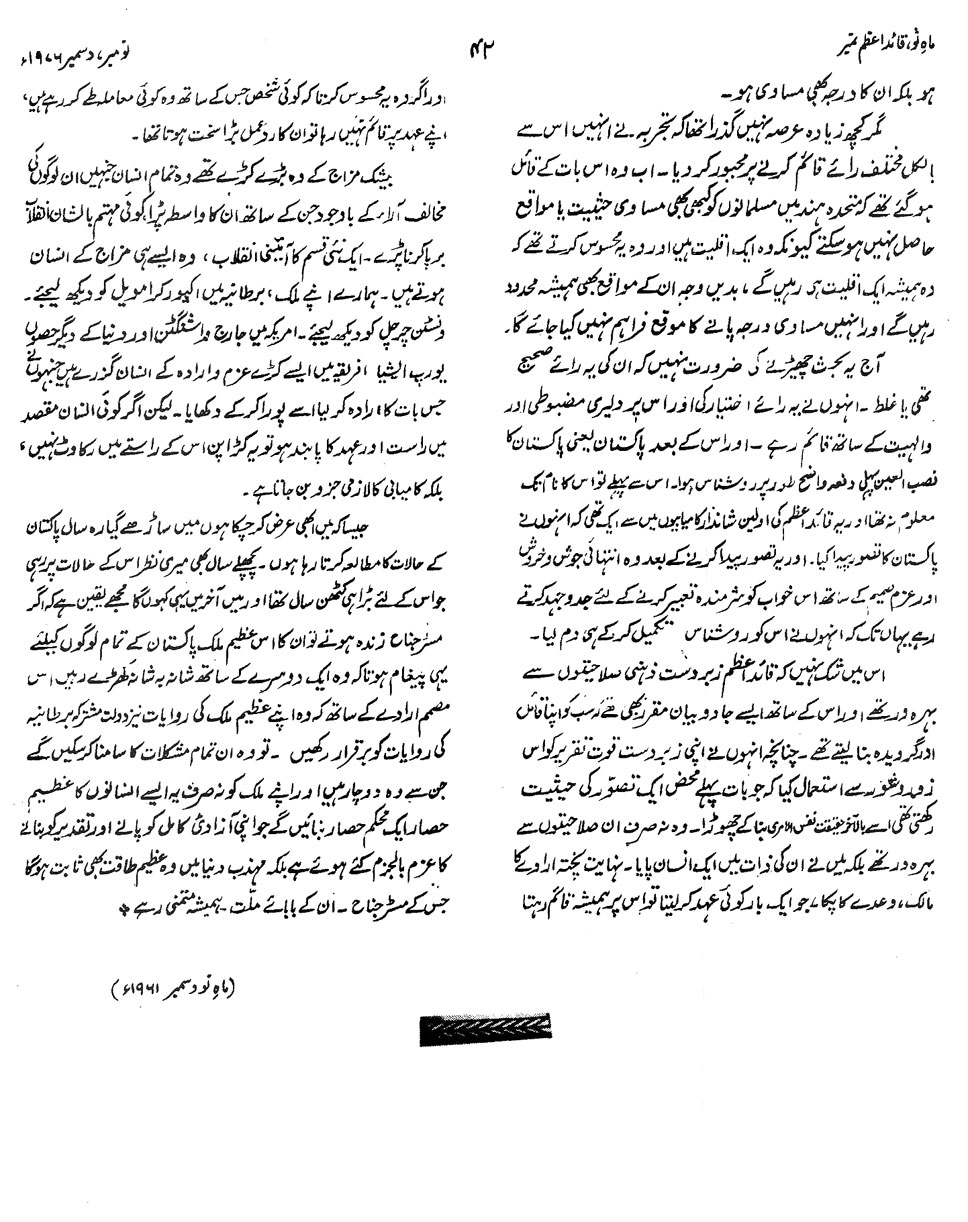 ماہِ نو، قائداعظم نمبر
۴۲
نومبر، دسمبر ۱۹۷۶ء
ہو بلکہ ان کا درجہ بھی مساوی ہو۔
مگر کچھ زیادہ عرصہ نہیں گذرا تھا کہ تجربہ نے انہیں اس سے
بالکل مختلف رائے قائم کرنے پر مجبور کر دیا۔ اب وہ اس بات کے قائل
ہوگئے تھے کہ متحدہ ہند میں مسلمانوں کو کبھی بھی مساوی حیثیت یا مواقع
حاصل نہیں ہو سکتے کیونکہ وہ ایک اقلیت ہیں اور وہ یہ محسوس کرتے تھے کہ
وہ ہمیشہ ایک اقلیت ہی رہیں گے، بدیں وجہ ان کے مواقع بھی ہمیشہ محدود
رہیں گے اور انہیں مساوی درجہ پانے کا موقع فراہم نہیں کیا جائے گا۔
آج یہ بحث چھیڑنے کی ضرورت نہیں کہ ان کی یہ رائے صحیح
تھی یا غلط۔ انہوں نے یہ رائے اختیار کی اور اس پر دلیری مضبوطی اور
والہیت کے ساتھ قائم رہے۔ اور اس کے بعد پاکستان یعنی پاکستان کا
نصب العین پہلی دفعہ واضح طور پر روشناس ہوا۔ اس سے پہلے تو اس کا نام تک
معلوم نہ تھا اور یہ قائد اعظم کی اولین شاندار کامیابیوں میں سے ایک تھی کہ انہوں نے
پاکستان کا تصور پیدا کیا۔ اور یہ تصور پیدا کرنے کے بعد وہ انتہائی جوش و خروش
اور عزم صمیم کے ساتھ اس خواب کو شرمندہ تعبیر کرنے کے لئے جدوجہد کرتے
رہے یہاں تک کہ انہوں نے اس کو روشناس تکمیل کر کے ہی دم لیا۔
اس میں شک نہیں کہ قائد اعظم زبردست ذہنی صلاحیتوں سے
بہرہ ور تھے اور اس کے ساتھ ایسے جادو بیان مقرر بھی تھے کہ سب کو اپنا قائل
اور گرویدہ بنا لیتے تھے۔ چنانچہ انہوں نے اپنی زبردست قوت تقریر کو اس
زور و شور سے استعمال کیا کہ جو بات پہلے محض ایک تصوّر کی حیثیت
رکھتی تھی اسے بالآخر حقیقت نفس الامری بنا کے چھوڑا۔ وہ نہ صرف ان صلاحیتوں سے
بہرہ ور تھے بلکہ میں نے ان کی ذات میں ایک انسان پایا۔ نہایت پختہ ارادے کا
مالک، وعدے کا پکا، جو ایک بار کوئی عہد کر لیتا تو اس پر ہمیشہ قائم رہتا
اور اگر وہ یہ محسوس کرتا کہ کوئی شخص جس کے ساتھ وہ کوئی معاملہ طے کر رہے ہیں،
اپنے عہد پر قائم نہیں رہا تو ان کا ردعمل بڑا سخت ہوتا تھا۔
بیشک مزاج کے وہ بڑے کڑے تھے وہ تمام انسان جنہیں ان لوگوں کی
مخالف آراء کے باوجود جن کے ساتھ ان کا واسطہ پڑا، کوئی مہتم بالشان انقلاب
برپا کرنا پڑے۔ ایک نئی قسم کا آئینی انقلاب، وہ ایسے ہی مزاج کے انسان
ہوتے ہیں۔ ہمارے اپنے ملک، برطانیہ میں، اکیور کرامویل کو دیکھ لیجئے۔
ونسٹن چرچل کو دیکھ لیجئے۔ امریکہ میں جارج واشنگٹن اور دنیا کے دیگر حصوں
یورپ ایشیا افریقہ میں ایسے کڑے عزم و ارادہ کے انسان گزرے ہیں جنہوں نے
جس بات کا ارادہ کر لیا اسے پورا کر کے دکھایا۔ لیکن اگر کوئی انسان مقصد
میں راست اور عہد کا پابند ہو تو یہ کڑا پن اس کے راستے میں رکاوٹ نہیں،
بلکہ کامیابی کا لازمی جزو بن جاتا ہے۔
جیسا کہ میں ابھی عرض کر چکا ہوں میں ساڑھے گیارہ سال پاکستان
کے حالات کا مطالعہ کرتا رہا ہوں۔ پچھلے سال بھی میری نظر اس کے حالات پر رہی
جو اس کے لئے بڑا ہی کٹھن سال تھا اور میں آخر میں یہی کہوں گا مجھے یقین ہے کہ اگر
مسٹر جناح زندہ ہوتے تو ان کا اس عظیم ملک پاکستان کے تمام لوگوں کیلئے
یہی پیغام ہوتا کہ وہ ایک دوسرے کے ساتھ شانہ بشانہ کھڑے رہیں اس
مصمم ارادے کے ساتھ کہ وہ اپنے عظیم ملک کی روایات نیز دولت مشترکہ برطانیہ
کی روایات کو برقرار رکھیں۔ تو وہ ان تمام مشکلات کا سامنا کر سکیں گے
جن سے وہ دوچار ہیں اور اپنے ملک کو نہ صرف یہ ایسے انسانوں کا عظیم
حصار ایک محکم حصار بنائیں گے جو اپنی آزادئ کامل کو پانے اور تقدیر کو بنانے
کا عزم بالجزم کئے ہوئے ہے بلکہ مہذب دنیا میں وہ عظیم طاقت بھی ثابت ہوگا
جس کے مسٹر جناح۔ ان کے بابائے ملّت۔ ہمیشہ متمنی رہے *
(ماہِ نو دسمبر ۱۹۶۱ء)